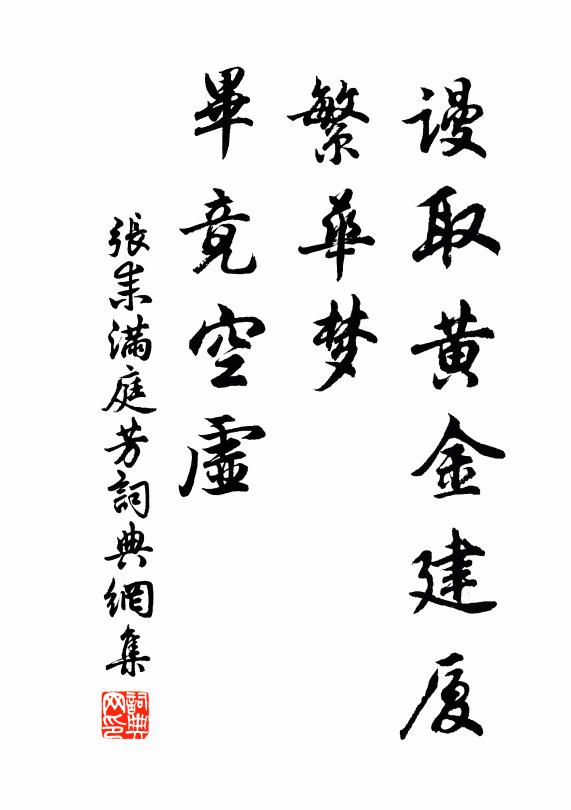 谩取黄金建厦
繁華梦
畢竟空虛
張耒滿庭芳詞典網集
詞典网印